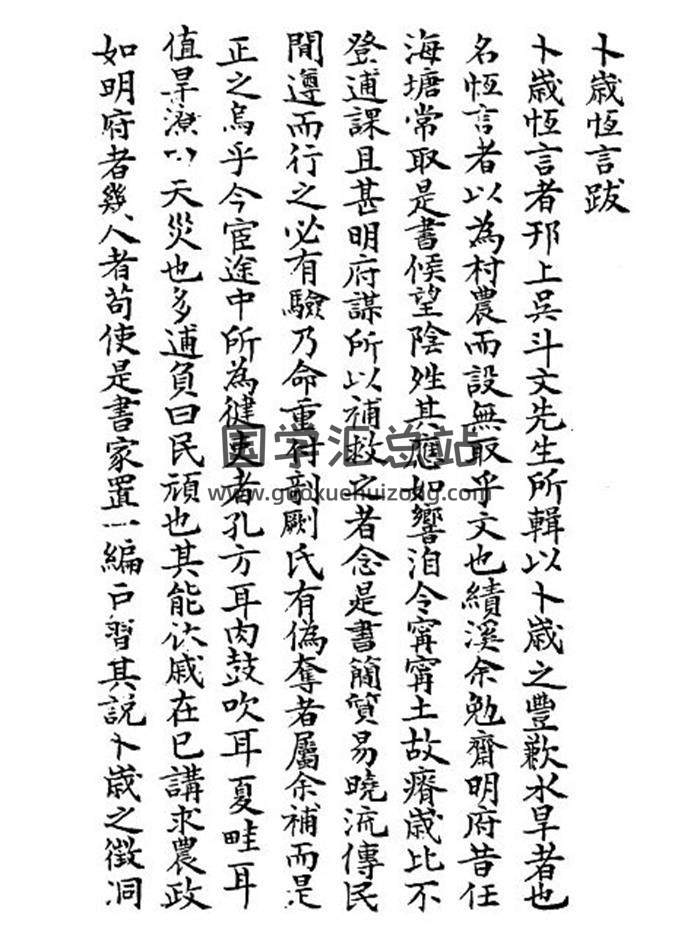 卜歲恆言跋
卜歲恆言者邗上吳斗文先生所輯以卜歲之豐歉水旱者也
名恆言者以為村農而設無取乎文也績溪余勉齋明府昔任
海塘常取是書候望陰姓其應如響洎令甯甯土故瘠歲比不
登逋課且甚明府謀所以補救之者念是書簡質易曉流傳民
間遵而行之必有驗乃命重付剞劂氏有偽奪者屬余補而是
正之烏乎今宦途中所為健吏者孔方耳肉鼓吹耳夏畦耳
值旱潦曰天災也多逋負曰民頑也其能休戚在已講求農政
如明府者幾人者苟使是書家置一編戶習其說卜歲之徵洞
国学汇总站
www.guoxuehuizong.com